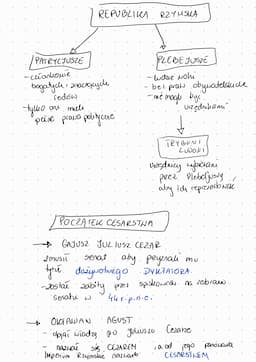 REPUBLIKA RZYMSKA
PATRYCJUSZE
- członkowie
bogatych i znaczących
rodów
- tylko oni mieli
pełne prawa polityczne
PLEBEJUSZE
- ludzie wolni
- bez praw obywatelskich
- nie mogli być
urzędnikami
TRYBUNI
LUDOWI
urzędnicy wybierani
przez Plebejuszy
aby ich reprezentować
POCZĄTEK CESARSTWA
→ GAJUSZ JULIUSZ CEZAR
- zmusił senat aby przyznał mu
tytuł dożywotniego DYKTATORA.
- został zabity przez spiskowców na zebraniu
senatu w 44 r. p.n.e.
→ OKTAWIAN AUGUST
- objął władzę po Juliuszu Cezarze
- nazwał się CEZAREM, a od jego panowania
Imperium Rzymskie nazwano CESARSTWEM